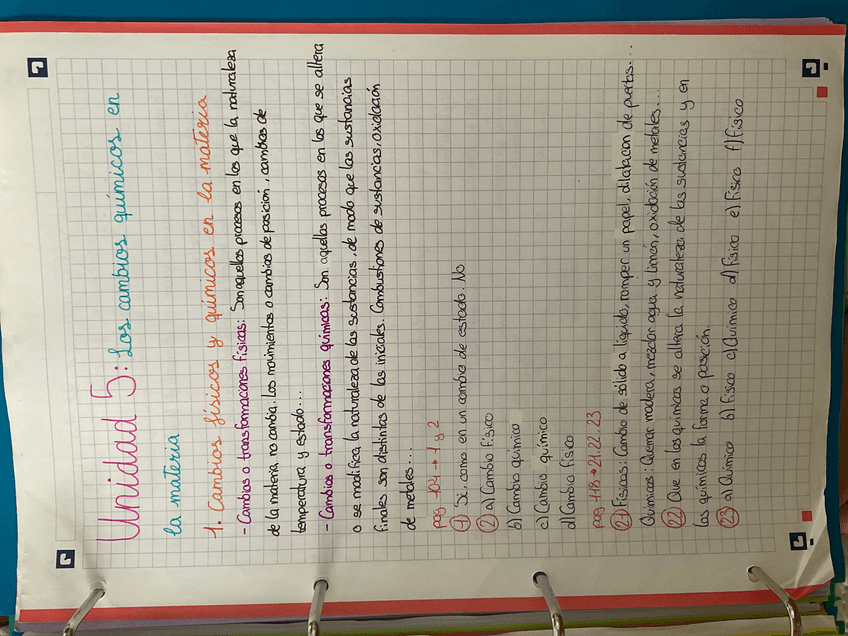 Unidad 5: Los cambios químicos en
la materia
1. Cambios físicos y químicos en la materia
- Cambios o transformaciones físicas: Son aquellos procesos en los que la naturaleza
de la materia no cambia. Los movimientos o cambios de posición, cambios de
temperatura y estado...
- Cambios o transformaciones químicas: Son aquellos procesos en los que se altera
o se modifica la naturaleza de las sustancias, de modo que las sustancias
finales son distintas de las iniciales. Combustiones de sustancias, oxidación
de metales...
pag 104 → 1 y 2
1 Si, como en un cambio de estado. No
2 a) Cambio físico
b) Cambio químico
c) Cambio químico
d) Cambio físico
pag 118 → 21. 22. 23
21 Físicas: Cambio de sólido a líquido, romper un papel, dilatación de puertas...
Químicos: Quemar madera, mezclar agua y limón, oxidación de metales...
22 Que en los químicos se altera la naturaleza de las sustancias y en
las químicos la forma o posición.
23 a) Químico b) Físico c) Químico d) Físico e) Físico f) Físico